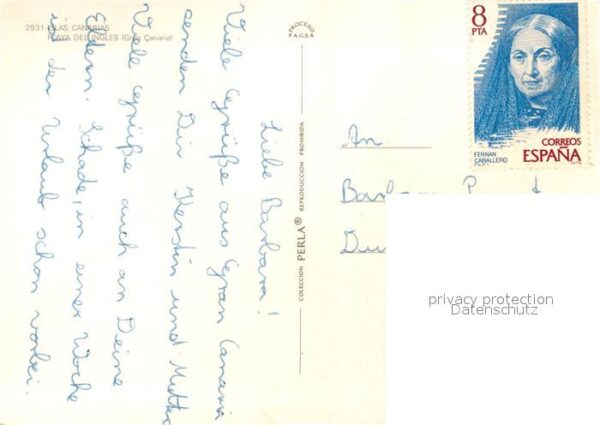 2931 ISLAS CANARIAS
PLAYA DEL INGLES (Gran Canaria)
Liebe Barbara!
Viele Grüße aus Gran Canaria
senden Dir Kerstin und Mutter
Viele Grüße auch an Deine
Eltern. Schade, in einer Woche
ist der Urlaub schon vorbei.
PROCERO
P.A.G.S.A
COLECCION PERLA® REPRODUCCION PROHIBIDA
8
PTA
FERNAN
CABALLERO
CORREOS
ESPAÑA
An
Barbara
privacy protection
Datenschutz